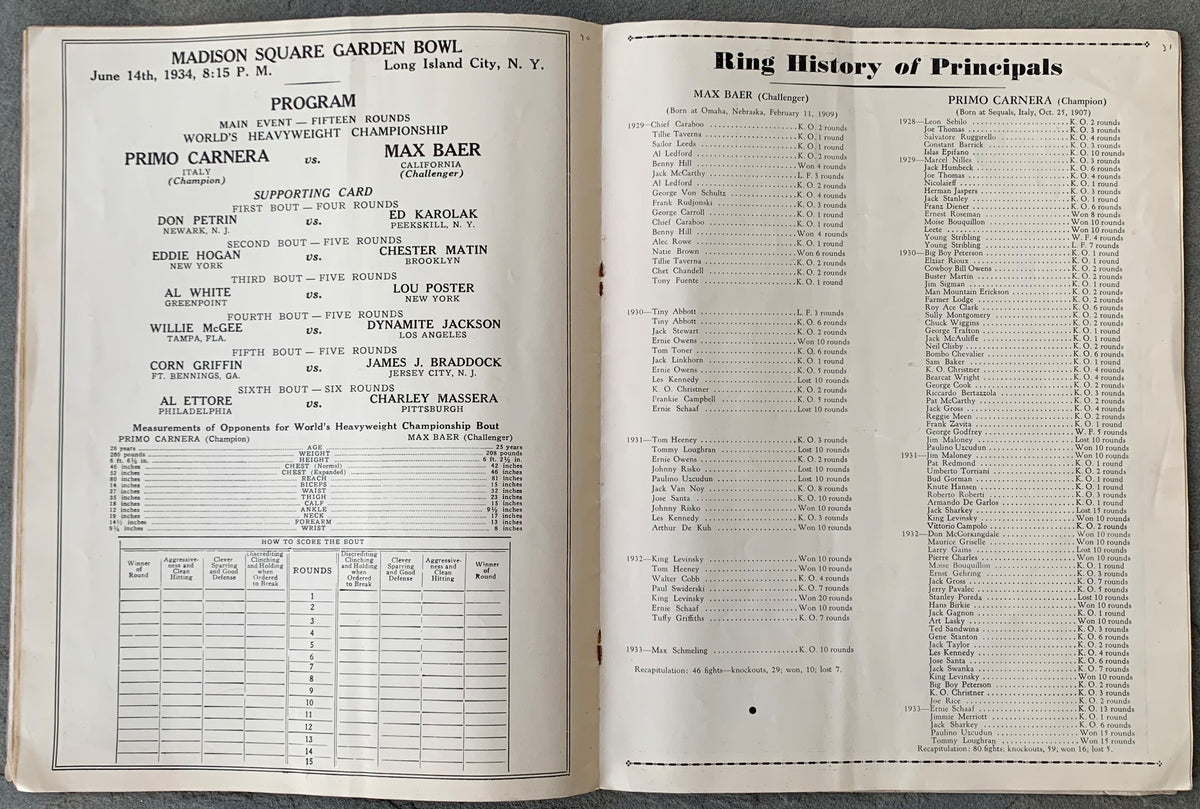 30
MADISON SQUARE GARDEN BOWL
June 14th, 1934, 8:15 P. M. Long Island City, N. Y.
PROGRAM
MAIN EVENT — FIFTEEN ROUNDS
WORLD'S HEAVYWEIGHT CHAMPIONSHIP
PRIMO CARNERA vs. MAX BAER
ITALY CALIFORNIA
(Champion) (Challenger)
SUPPORTING CARD
FIRST BOUT — FOUR ROUNDS
DON PETRIN vs. ED KAROLAK
NEWARK, N. J. PEEKSKILL, N. Y.
SECOND BOUT — FIVE ROUNDS
EDDIE HOGAN vs. CHESTER MATIN
NEW YORK BROOKLYN
THIRD BOUT — FIVE ROUNDS
AL WHITE vs. LOU POSTER
GREENPOINT NEW YORK
FOURTH BOUT — FIVE ROUNDS
WILLIE McGEE vs. DYNAMITE JACKSON
TAMPA, FLA. LOS ANGELES
FIFTH BOUT — FIVE ROUNDS
CORN GRIFFIN vs. JAMES J. BRADDOCK
FT. BENNINGS, GA. JERSEY CITY, N. J.
SIXTH BOUT — SIX ROUNDS
AL ETTORE vs. CHARLEY MASSERA
PHILADELPHIA PITTSBURGH
Measurements of Opponents for World's Heavyweight Championship Bout
PRIMO CARNERA (Champion) MAX BAER (Challenger)
26 years AGE 25 years
260 pounds WEIGHT 208 pounds
6 ft. 6½ in. HEIGHT 6 ft. 2½ in.
46 inches CHEST (Normal) 42 inches
52 inches CHEST (Expanded) 46 inches
80 inches REACH 81 inches
14 inches BICEPS 15 inches
37 inches WAIST 32 inches
35 inches THIGH 23 inches
18 inches CALF 15 inches
12 inches ANKLE 9½ inches
19 inches NECK 17 inches
14½ inches FOREARM 13 inches
9¼ inches WRIST 8 inches
HOW TO SCORE THE BOUT
Winner of Round
Aggressiveness and Clean Hitting
Clever Sparring and Good Defense
Discrediting Clinching and Holding when Ordered to Break
ROUNDS
Discrediting Clinching and Holding when Ordered to Break
Clever Sparring and Good Defense
Aggressiveness and Clean Hitting
Winner of Round
1
2
3
4
5
6
7
8
9
10
11
12
13
14
15
31
Ring History of Principals
MAX BAER (Challenger)
(Born at Omaha, Nebraska, February 11, 1909)
1929—Chief Caraboo K. O. 2 rounds
Tillie Taverna K. O. 1 round
Sailor Leeds K. O. 1 round
Al Ledford K. O. 2 rounds
Benny Hill Won 4 rounds
Jack McCarthy L. F. 3 rounds
Al Ledford K. O. 2 rounds
George Von Schultz K. O. 4 rounds
Frank Rudjonski K. O. 3 rounds
George Carroll K. O. 1 round
Chief Caraboo K. O. 1 round
Benny Hill Won 4 rounds
Alec Rowe K. O. 1 round
Natie Brown Won 6 rounds
Tillie Taverna K. O. 2 rounds
Chet Chandell K. O. 2 rounds
Tony Fuente K. O. 1 round
1930—Tiny Abbott L. F. 3 rounds
Tiny Abbott K. O. 6 rounds
Jack Stewart K. O. 2 rounds
Ernie Owens Won 10 rounds
Tom Toner K. O. 6 rounds
Jack Linkhorn K. O. 1 round
Ernie Owens K. O. 5 rounds
Les Kennedy Lost 10 rounds
K. O. Christner K. O. 2 rounds
Frankie Campbell K. O. 5 rounds
Ernie Schaaf Lost 10 rounds
1931—Tom Heeney K. O. 3 rounds
Tommy Loughran Lost 10 rounds
Ernie Owens K. O. 2 rounds
Johnny Risko Lost 10 rounds
Paulino Uzcudun Lost 10 rounds
Jack Van Noy K. O. 8 rounds
Jose Santa K. O. 10 rounds
Johnny Risko Won 10 rounds
Les Kennedy K. O. 3 rounds
Arthur De Kuh Won 10 rounds
1932—King Levinsky Won 10 rounds
Tom Heeney Won 10 rounds
Walter Cobb K. O. 4 rounds
Paul Swiderski K. O. 7 rounds
King Levinsky Won 20 rounds
Ernie Schaaf Won 10 rounds
Tuffy Griffiths K. O. 7 rounds
1933—Max Schmeling K. O. 10 rounds
Recapitulation: 46 fights—knockouts, 29; won, 10; lost 7.
PRIMO CARNERA (Champion)
(Born at Sequals, Italy, Oct. 25, 1907)
1928—Leon Sebilo K. O. 2 rounds
Joe Thomas K. O. 3 rounds
Salvatore Ruggirello K. O. 4 rounds
Constant Barrick K. O. 3 rounds
Islas Epifano K. O. 10 rounds
1929—Marcel Nilles K. O. 3 rounds
Jack Humbeck K. O. 6 rounds
Joe Thomas K. O. 4 rounds
Nicolaieff K. O. 1 round
Herman Jaspers K. O. 3 rounds
Jack Stanley K. O. 1 round
Franz Diener K. O. 6 rounds
Ernest Roseman Won 8 rounds
Moise Bouquillon Won 10 rounds
Leete Won 10 rounds
Young Stribling W. F. 4 rounds
Young Stribling L. F. 7 rounds
1930—Big Boy Peterson K. O. 1 round
Elziar Rioux K. O. 1 round
Cowboy Bill Owens K. O. 2 rounds
Buster Martin K. O. 2 rounds
Jim Sigman K. O. 1 round
Man Mountain Erickson K. O. 2 rounds
Farmer Lodge K. O. 2 rounds
Roy Ace Clark K. O. 6 rounds
Sully Montgomery K. O. 2 rounds
Chuck Wiggins K. O. 2 rounds
George Trafton K. O. 1 round
Jack McAuliffe K. O. 1 round
Neil Clisby K. O. 2 rounds
Bombo Chevalier K. O. 6 rounds
Sam Baker K. O. 1 round
K. O. Christner K. O. 4 rounds
Bearcat Wright K. O. 4 rounds
George Cook K. O. 2 rounds
Riccardo Bertazzola K. O. 3 rounds
Pat McCarthy K. O. 2 rounds
Jack Gross K. O. 4 rounds
Reggie Meen K. O. 2 rounds
Frank Zavita K. O. 1 round
George Godfrey W. F. 5 rounds
Jim Maloney Lost 10 rounds
Paulino Uzcudun Won 10 rounds
1931—Jim Maloney Won 10 rounds
Pat Redmond K. O. 1 round
Umberto Torriani K. O. 2 rounds
Bud Gorman K. O. 1 round
Knute Hansen K. O. 1 round
Roberto Roberti K. O. 3 rounds
Armando De Garlos K. O. 1 round
Jack Sharkey Lost 15 rounds
King Levinsky Won 10 rounds
Vittorio Campolo K. O. 2 rounds
1932—Don McCorkingdale Won 10 rounds
Maurice Griselle Won 10 rounds
Larry Gains Lost 10 rounds
Pierre Charles Won 10 rounds
Moise Bouquillon K. O. 1 round
Ernst Gehring K. O. 3 rounds
Jack Gross K. O. 7 rounds
Jerry Pavalec K. O. 5 rounds
Stanley Poreda Lost 10 rounds
Hans Birkie Won 10 rounds
Jack Gagnon K. O. 1 round
Art Lasky Won 10 rounds
Ted Sandwina K. O. 3 rounds
Gene Stanton K. O. 6 rounds
Jack Taylor K. O. 2 rounds
Les Kennedy K. O. 4 rounds
Jose Santa K. O. 6 rounds
Jack Swanka K. O. 7 rounds
King Levinsky Won 10 rounds
Big Boy Peterson K. O. 2 rounds
K. O. Christner K. O. 3 rounds
Joe Rice K. O. 2 rounds
1933—Ernie Schaaf K. O. 13 rounds
Jimmie Merriott K. O. 1 round
Jack Sharkey K. O. 6 rounds
Paulino Uzcudun Won 15 rounds
Tommy Loughran Won 15 rounds
Recapitulation: 80 fights; knockouts, 59; won 16; lost 5.